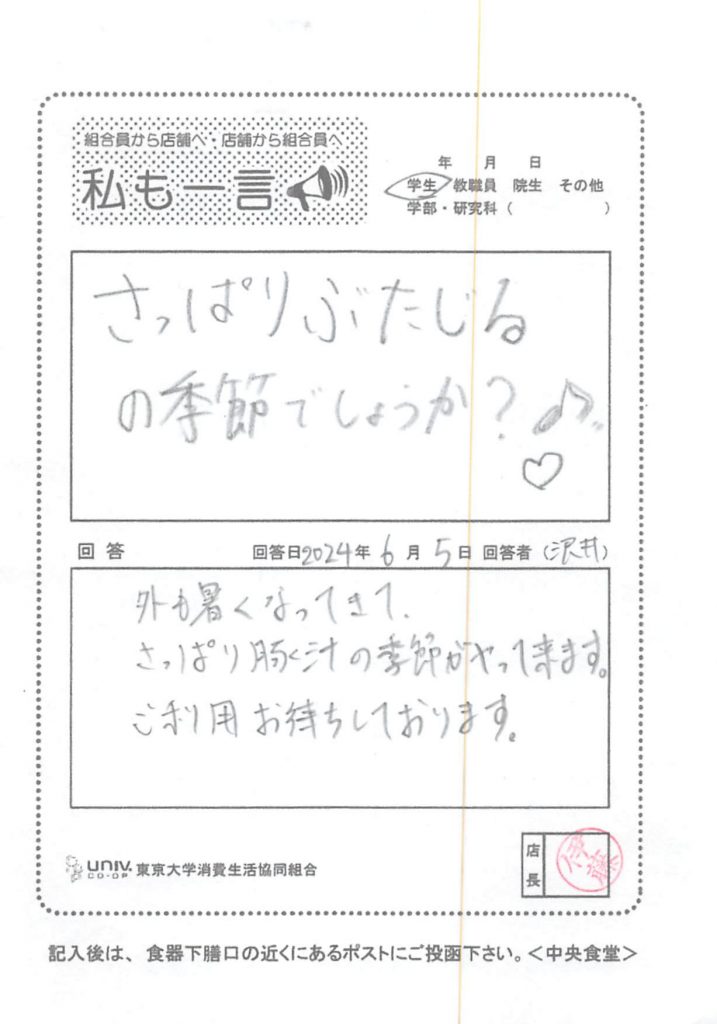 組合員から店舗へ・店舗から組合員へ
私も一言
年 月 日
学生 教職員 院生 その他
学部・研究科（ ）
さっぱりぶたじる
の季節でしょうか？♪
♡
回答 回答日2024年6月5日 回答者（沢井）
外も暑くなってきて、
さっぱり豚汁の季節がやって来ます。
ご利用お待ちしております。
UNIV. CO-OP 東京大学消費生活協同組合
店長 伊藤
記入後は、食器下膳口の近くにあるポストにご投函下さい。＜中央食堂＞